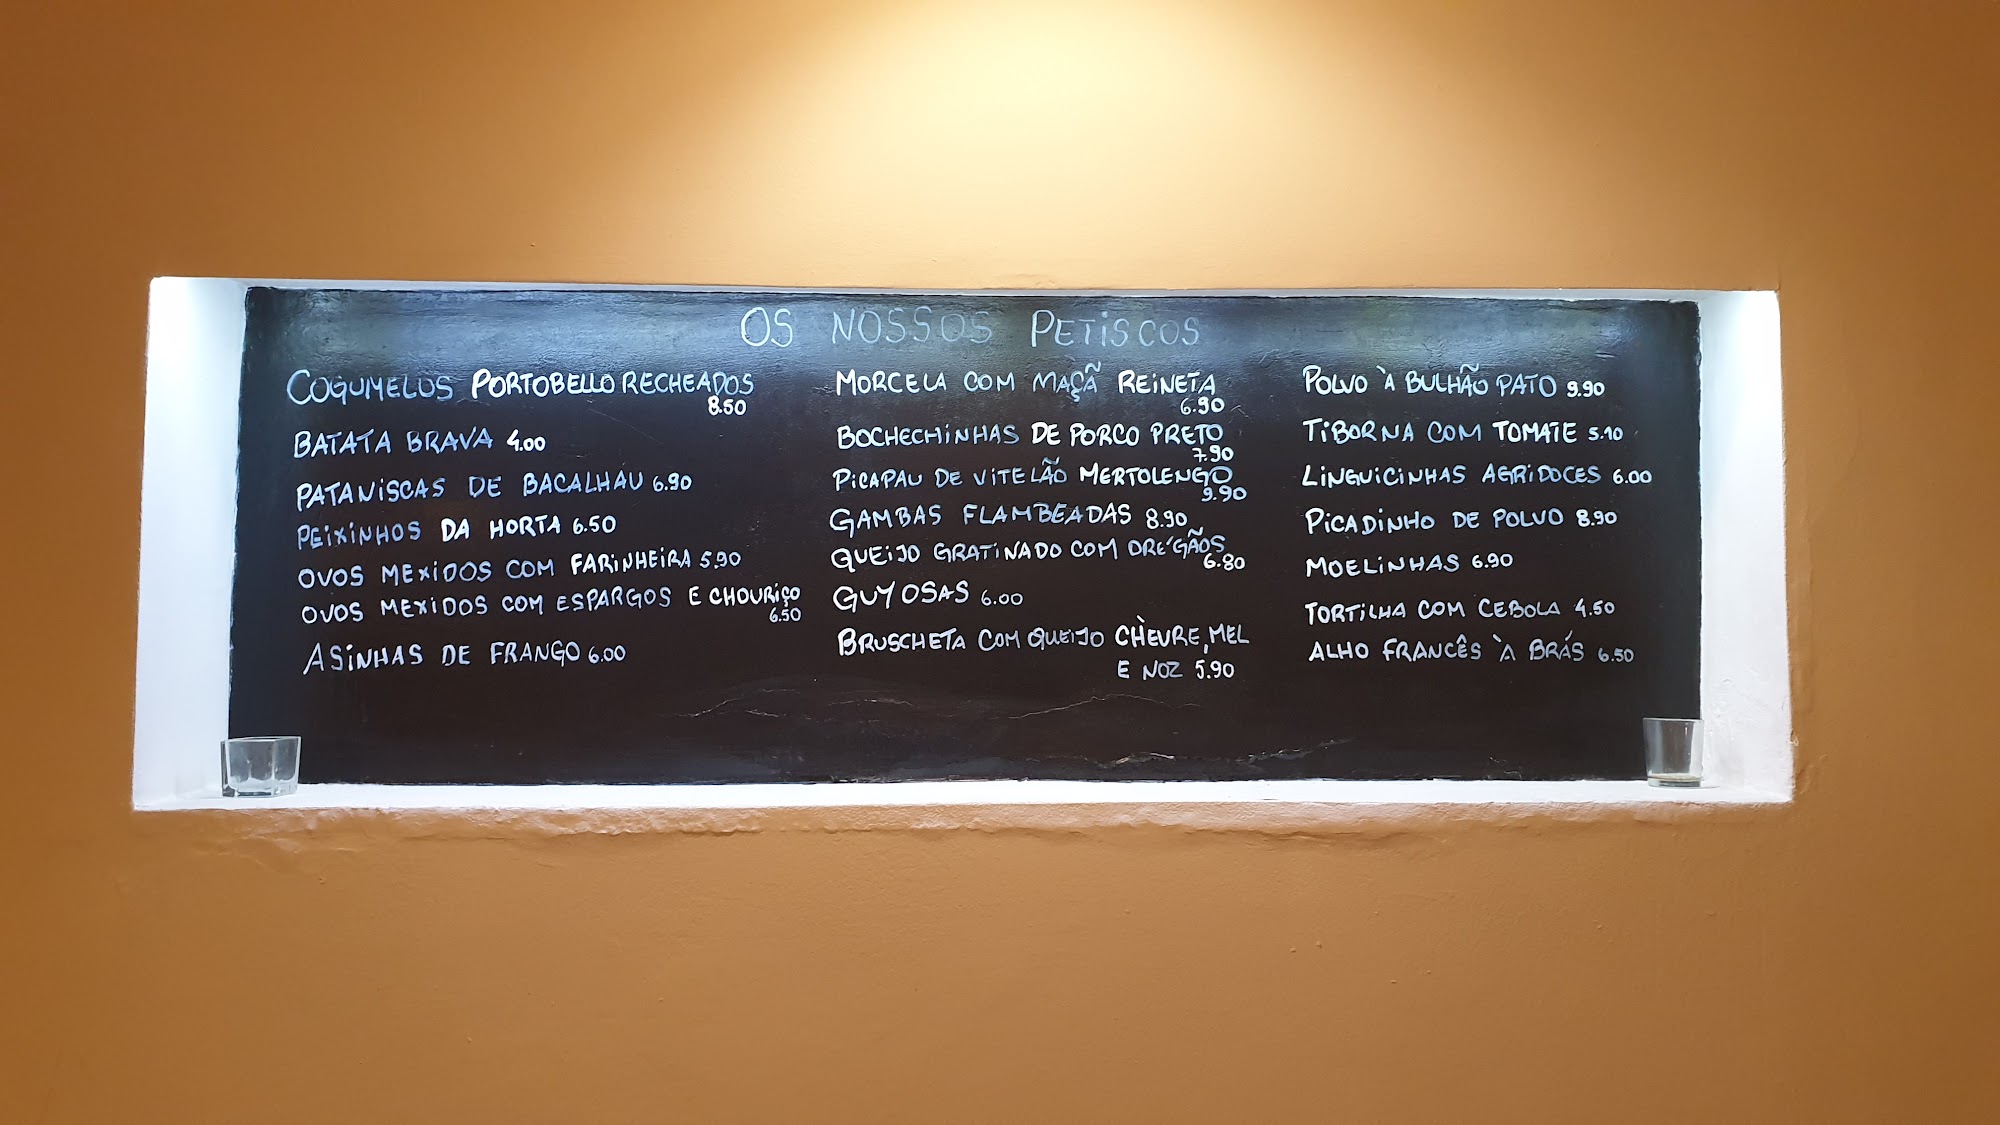 OS NOSSOS PETISCOS
COGUMELOS PORTOBELLO RECHEADOS
8.50
BATATA BRAVA 4.00
PATANISCAS DE BACALHAU 6.90
PEIXINHOS DA HORTA 6.50
OVOS MEXIDOS COM FARINHEIRA 5.90
OVOS MEXIDOS COM ESPARGOS E CHOURIÇO
6.50
ASINHAS DE FRANGO 6.00
MORCELA COM MAÇÃ REINETA
6.90
BOCHECHINHAS DE PORCO PRETO
7.90
PICAPAU DE VITELÃO MERTOLENGO
9.90
GAMBAS FLAMBEADAS 8.90
QUEIJO GRATINADO COM ORÉGÃOS
6.80
GUYOSAS 6.00
BRUSCHETA COM QUEIJO CHÈVRE, MEL
E NOZ 5.90
POLVO À BULHÃO PATO 9.90
TIBORNA COM TOMATE 5.10
LINGUICINHAS AGRIDOCES 6.00
PICADINHO DE POLVO 8.90
MOELINHAS 6.90
TORTILHA COM CEBOLA 4.50
ALHO FRANCÊS À BRÁS 6.50